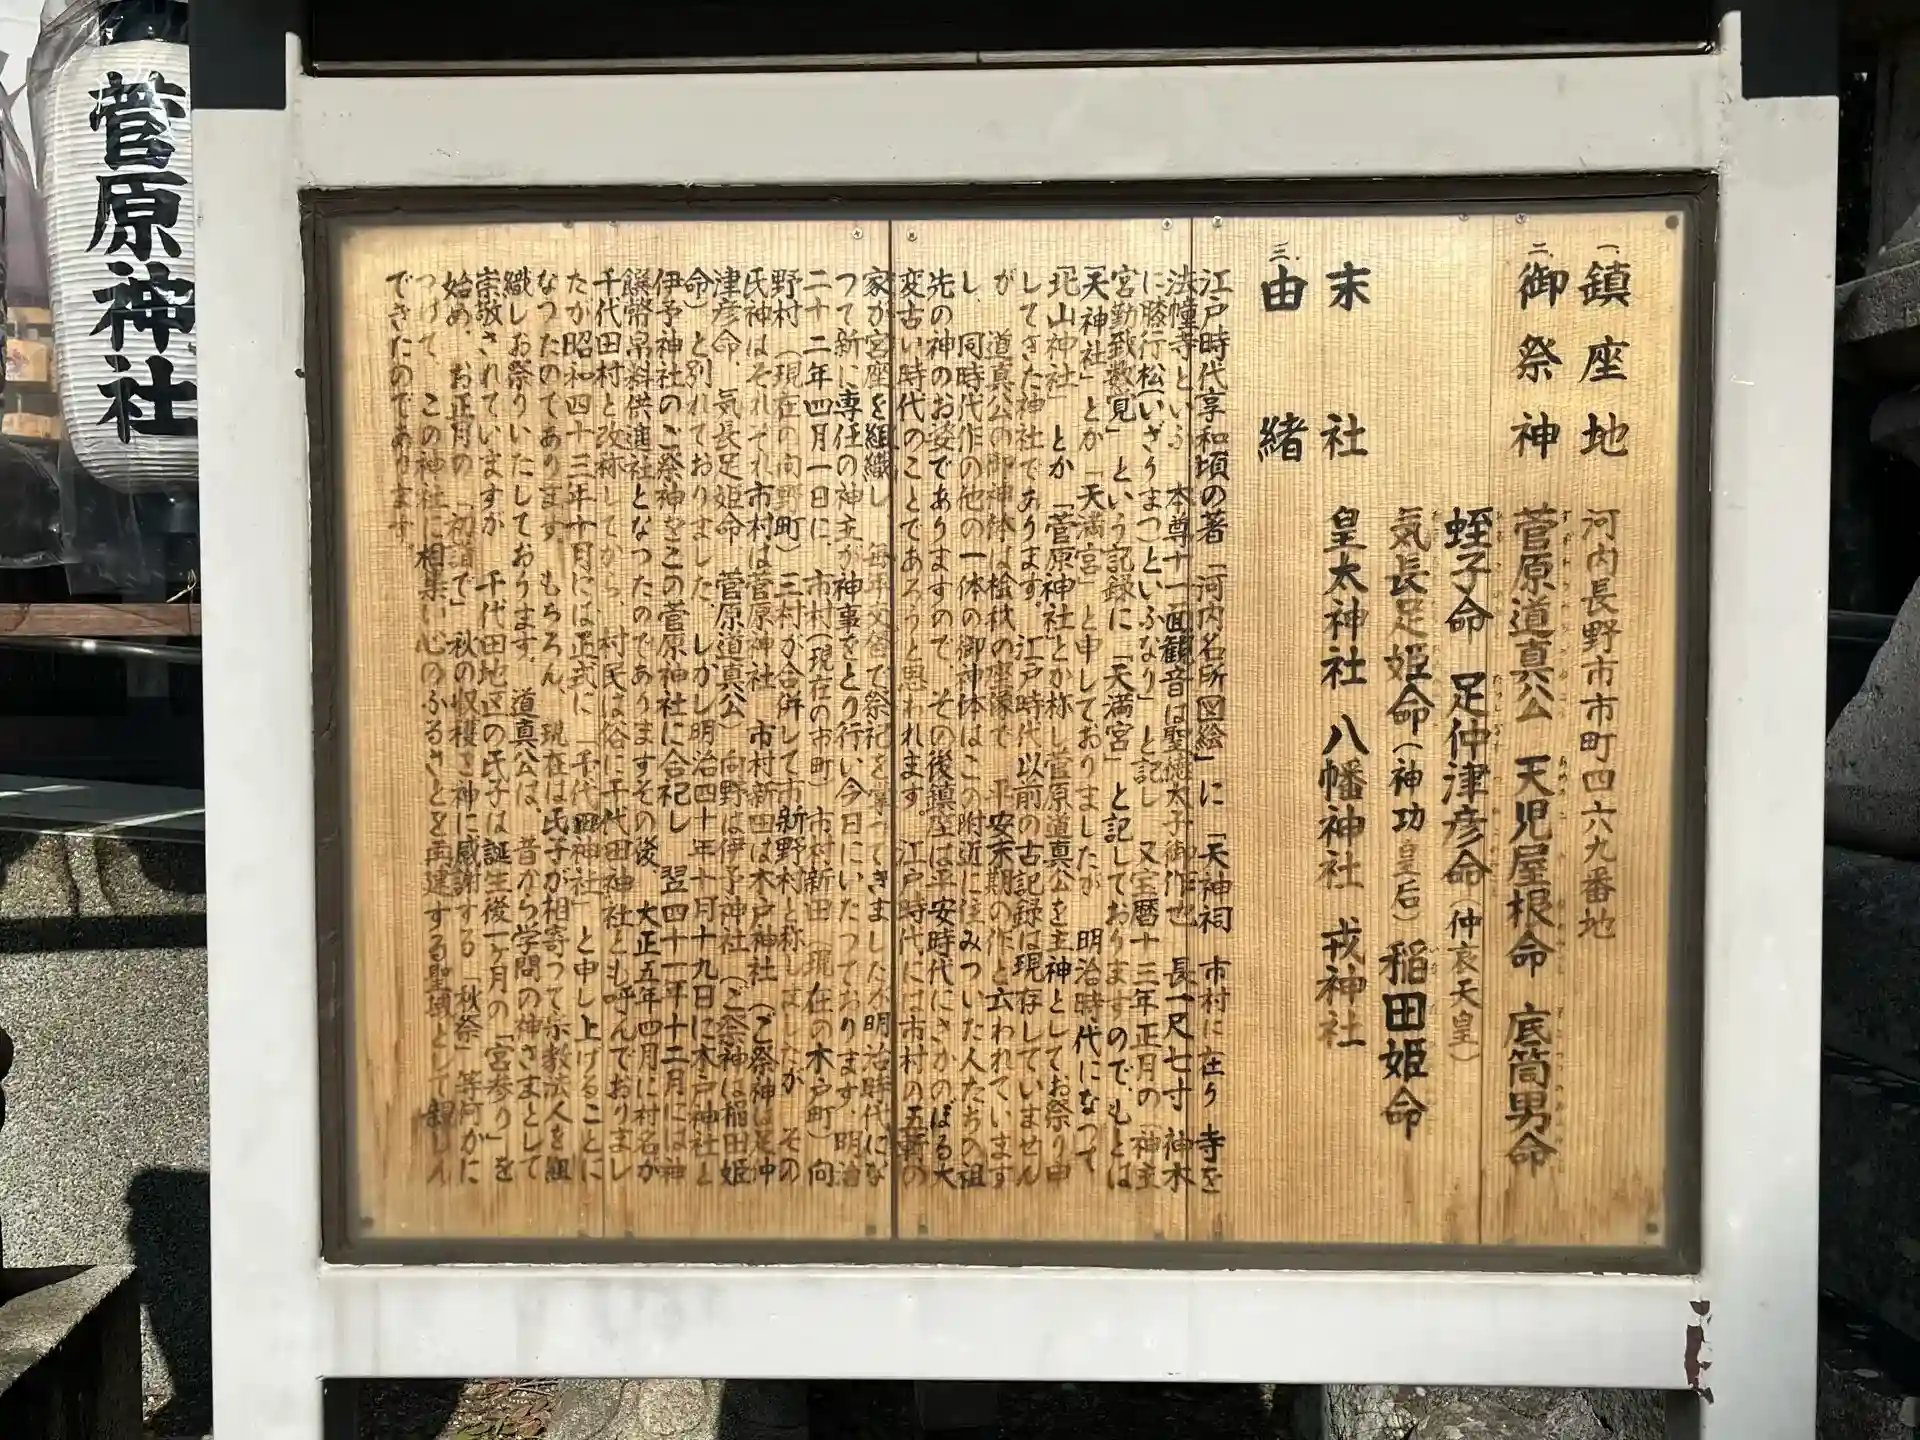 一、鎮座地 河内長野市市町四六九番地
二、御祭神 菅原道真公 天児屋根命 底筒男命
蛭子命 足仲津彦命(仲哀天皇)
気長足姫命(神功皇后)稲田姫命
末社 皇太神社 八幡神社 戎神社
三、由緒
江戸時代享和頃の著「河内名所図絵」に「天神祠 市村に在り 寺を
法幢寺といふ 本尊十一面観音は聖徳太子御作也 長一尺七寸 神木
に膝行松(いざりまつ)といふなり」と記し 又宝暦十三年正月の「神主
宮勤致数覚」という記録に「天満宮」と記しておりますので、もとは
「天神社」とか「天満宮」と申しておりましたが 明治時代になつて
「北山神社」とか「菅原神社」とか称し菅原道真公を主神としてお祭り申
してきた神社であります。江戸時代以前の古記録は現存していません
が 道真公の御神体は桧材の座像で 平安末期の作と云われています
し、同時代作の他の一体の御神体はこの附近に住みついた人たちの祖
先の神のお姿でありますので、その後鎮座は平安時代にさかのぼる大
変古い時代のことであろうと思われます。江戸時代には市村の五軒の
家が宮座を組織し 毎年交替で祭祀を掌つてきましたが明治時代にな
つて新に専任の神主が神事をとり行い今日にいたつております。明治
二十二年四月一日に、市村(現在の市町)市村新田(現在の木戸町)向
野村(現在の向野町)三村が合併して市新野村と称しましたが その
氏神はそれぞれ市村は菅原神社 市村新田は木戸神社(ご祭神は足仲
津彦命、気長足姫命 菅原道真公)向野は伊予神社(ご祭神は稲田姫
命)と別れておりました。しかし明治四十年十月十九日に木戸神社と
伊予神社のご祭神をこの菅原神社に合祀し 翌四十一年十二月には神
饌幣帛料供進社となつたのでありますその後、大正五年四月に村名が
千代田村と改称してから、村民は俗に千代田神社とも呼んでおりまし
たが昭和四十三年十月には正式に「千代田神社」と申し上げることに
なつたのであります。もちろん、現在は氏子が相寄つて宗教法人を組
織しお祭りいたしております。道真公は、昔から学問の神さまとして
崇敬されていますが 千代田地区の氏子は誕生後一ヶ月の「宮参り」を
始め、お正月の「初詣で」秋の収穫を神に感謝する「秋祭」等何かに
つけて、この神社に相集い心のふるさとを再建する聖域として親しん
できたのであります。
菅原神社